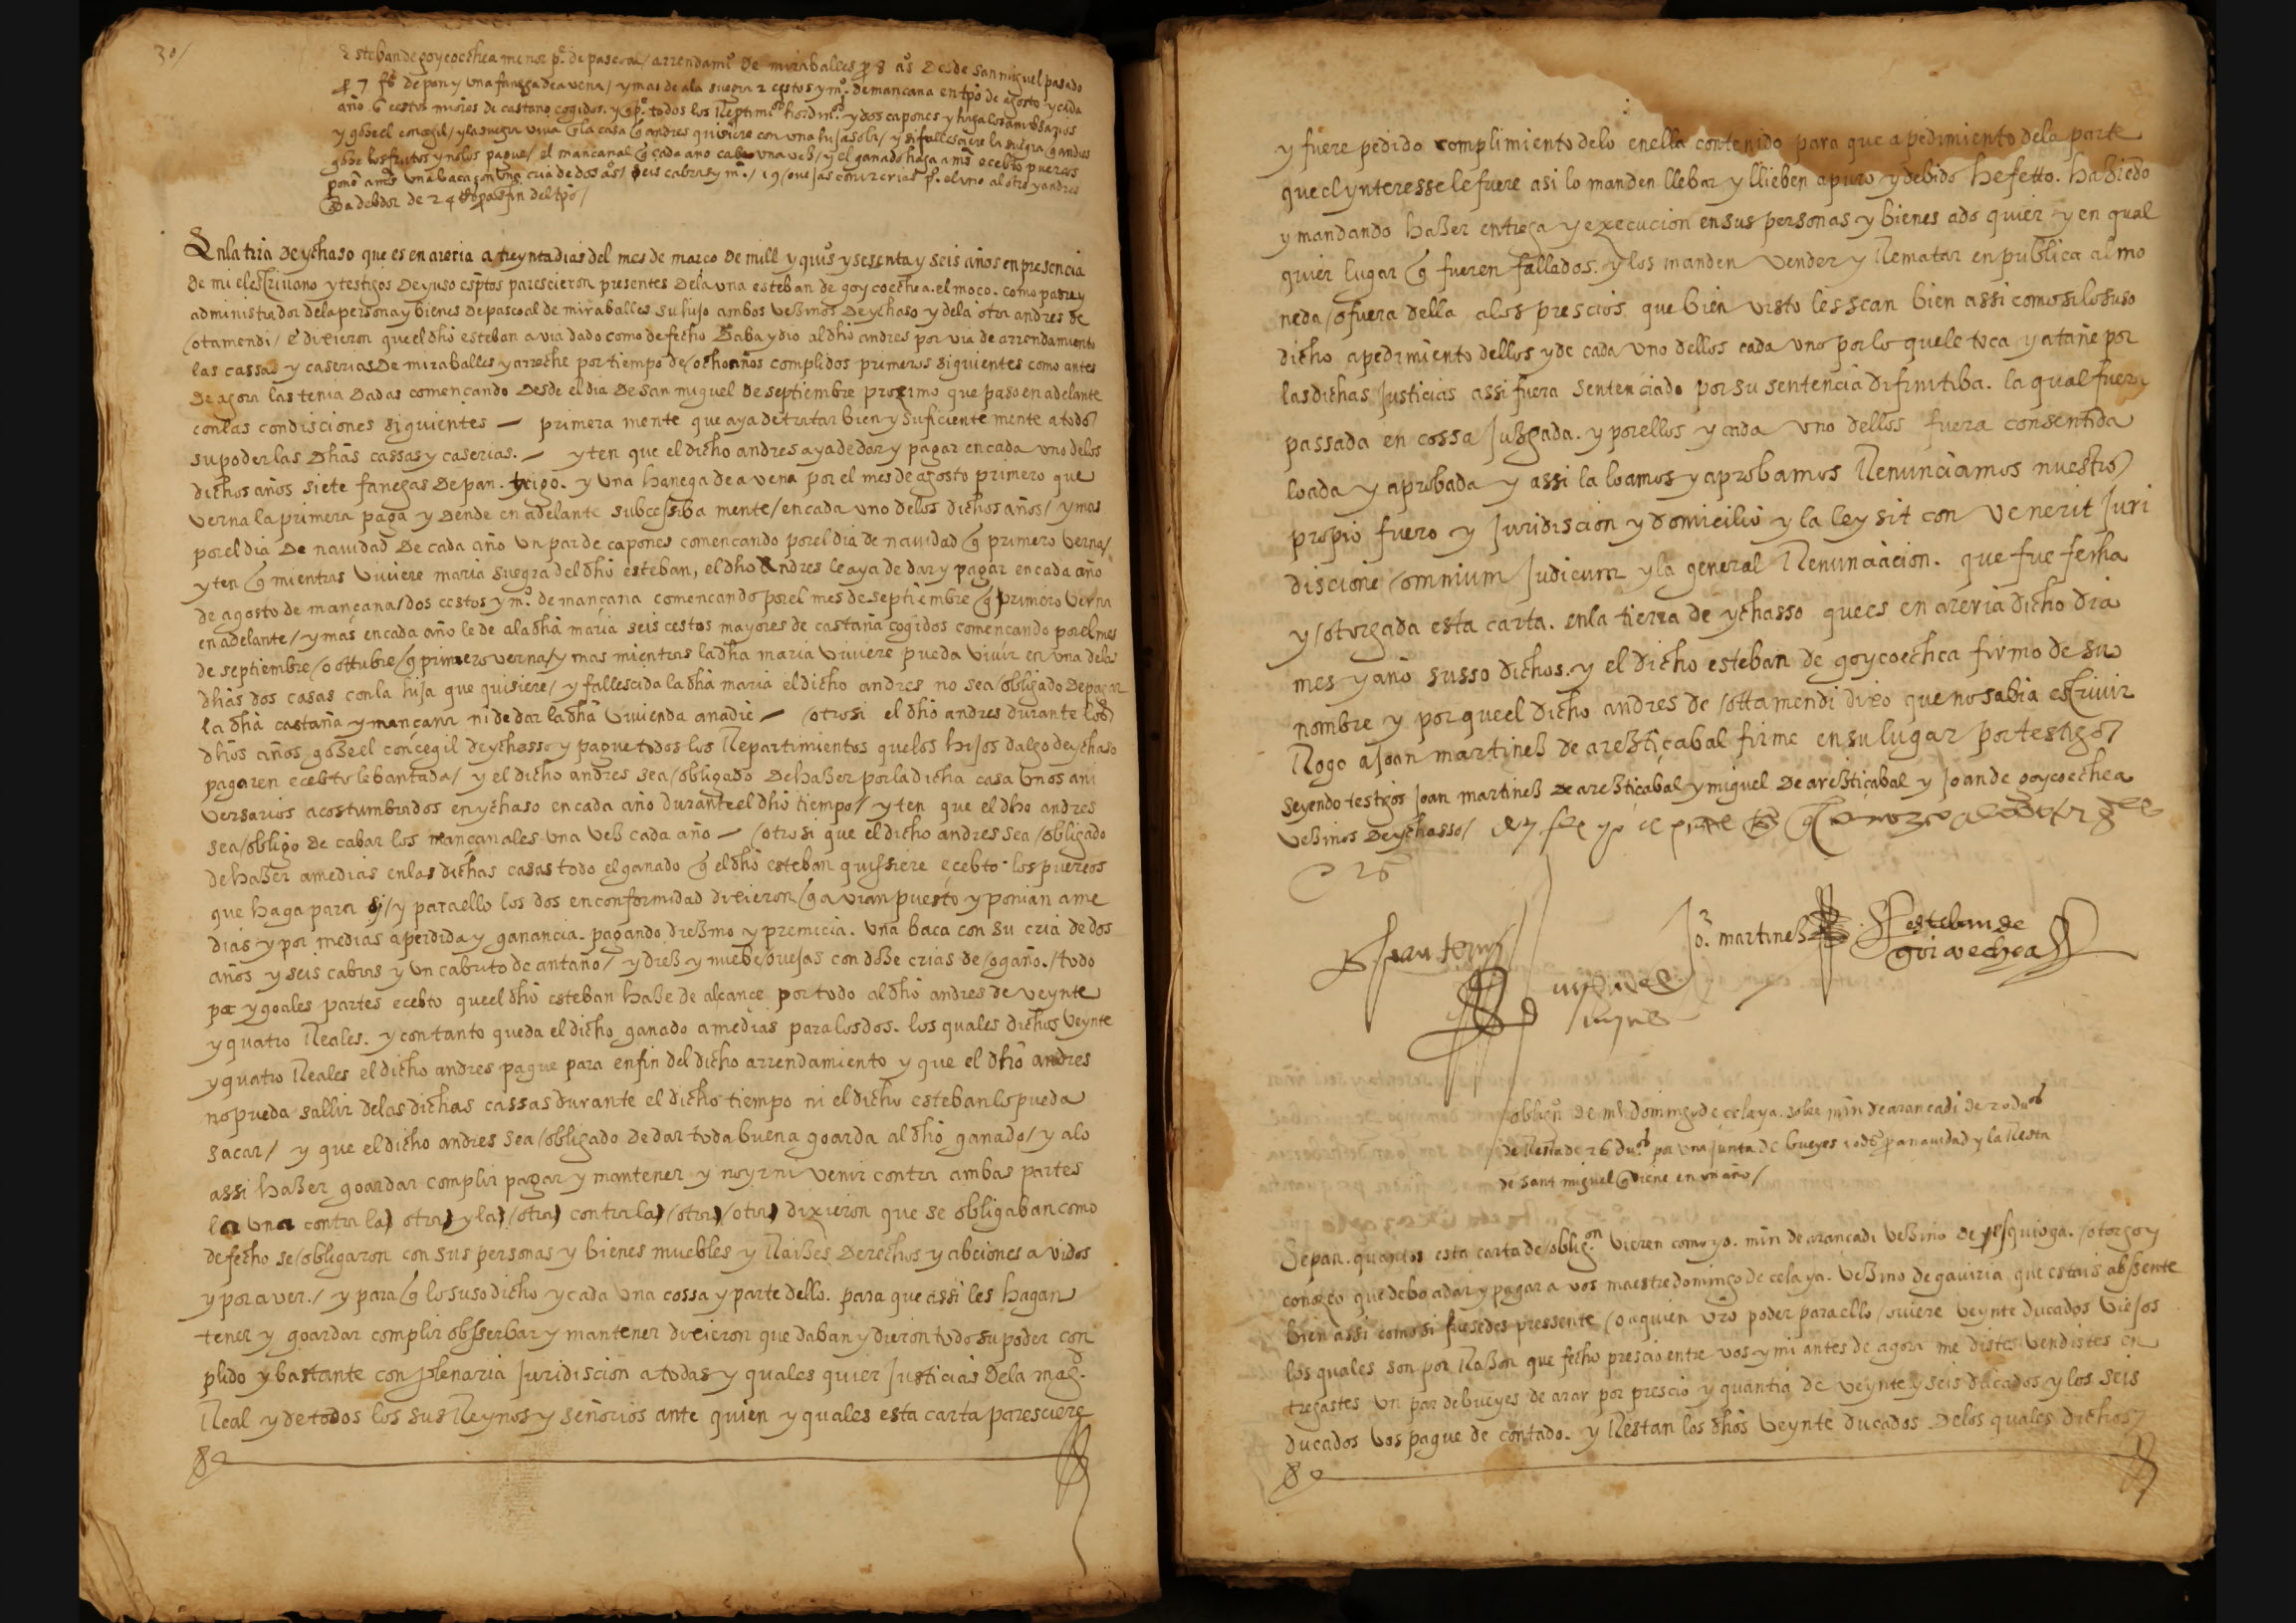 30/
Esteban de goycoechea menor pº. de pascoal / arrendamiº de miraballes p 8 aºs desde san miguel pasado
p 7 fªs de pan y una fanega de avena / y mas de a la suegra 2 cestos y mº. de mançana en tpo de agosto y cada
año 6 cestos maiores de castaña cogidos. y todos los Reptimiºs hordinºs. y dos capones y haga los anibersarios
y goze el conçegil / y la suegra viva en la casa q andres quisiere con una hija sola / y si fallesciere la suegra q andres
goze los frutos y no los pague / el mançanal q cada año cabe una vez / y el ganado haga a mªs ecebto puercos
ponē a mªs una baca con una cria de dos aºs / seis cabras y mº. / 19 ovejas con 12 crias pº. el uno al otro y andres
q da debdor de 24 Rs para fin del tpo /
En la trra de ychaso que es en areria a treynta dias del mes de março de mill y quiºs y sesenta y seis años en presencia
de mi el escrivano y testigos deyuso escptos parescieron presentes de la una esteban de goycoechea. el moco. como padre y
administrador de la persona y bienes de pascoal de miraballes su hijo ambos vezinos de ychaso y de la otra andres de
otamendi / e dixieron que el dho esteban avia dado como de fecho daba y dio al dho andres por via de arrendamiento
las cassas y caserias de miraballes y arreche por tiempo de ocho años complidos primeros siguientes como antes
de agora las tenia dadas començando desde el dia de san miguel de septiembre proximo que paso en adelante
con las condisciones siguientes — primera mente que aya de tratar bien y suficiente mente a todo
su poder las dhas cassas y caserias. — yten que el dicho andres aya de dar y pagar en cada uno de los
dichos años siete fanegas de pan. trigo. y una hanega de avena por el mes de agosto primero que
verna la primera paga y dende en adelante subcessiba mente / en cada uno de los dichos años / y mas
por el dia de navidad de cada año un par de capones començando por el dia de navidad q primero verna /
yten q mientras viviere maria suegra del dho esteban, el dho andres le aya de dar y pagar en cada año
de agosto de mançana / dos cestos y mº de mançana començando por el mes de septiembre q primero verna
en adelante / y mas en cada año le de a la dha maria seis cestos mayores de castaña cogidos comencando por el mes
de septiembre / o ottubre / q primero verna / y mas mientras la dha maria viviere pueda vivir en una de las
dhas dos casas con la hija que quisiere / y fallescida la dha maria el dicho andres no sea / obligado de pagar
la dha castaña y mançana ni de dar la dha vivienda a nadie — otrosi el dho andres durante los
dhos años goze el conçegil de ychasso y pague todos los Repartimientos que los hijos dalgo de ychaso
pagaren ecebto lebantada / y el dicho andres sea / obligado de hazer por la dicha casa unos ani
versarios acostumbrados en ychaso en cada año durante el dho tiempo / yten que el dho andres
sea / obligo de cabar los mançanales una vez cada año — otrosi que el dicho andres sea / obligado
de hazer a medias en las dichas casas todo el ganado q el dho esteban quissiere ecebto los puercos
que haga para si / y para ello los dos en conformidad dixieron q avian puesto y ponian a me
dias y por medias a perdida y ganancia. pagando diezmo y premicia. una baca con su cria de dos
años y seis cabras y un cabrito de antaño / y diez y nuebe ovejas con doze crias de / ogaño. / todo
por ygoales partes ecebto que el dho esteban haze de alcance por todo al dho andres de veynte
y quatro Reales. y con tanto queda el dicho ganado a medias para los dos. los quales dichos veynte
y quatro Reales el dicho andres pague para en fin del dicho arrendamiento y que el dho andres
no pueda sallir de las dichas cassas durante el dicho tiempo ni el dicho esteban lo pueda
sacar / y que el dicho andres sea / obligado de dar toda buena goarda al dho ganado / y a lo
assi hazer goardar complir pagar y mantener y no yr ni venir contra ambas partes
la una contra la otra y la / otra contra la / otra / otra dixieron que se obligaban como
de fecho se / obligaron con sus personas y bienes muebles y Raizes derechos y abciones avidos
y por aver. / y para q lo suso dicho y cada una cossa y parte dello. para que assi les hagan
tener y goardar complir obsserbar y mantener dixieron que daban y dieron todo su poder con
plido y bastante con plenaria juridiscion a todas y quales quier justicias de la magd.
Real y de todos los sus Reynos y señorios ante quien y quales esta carta paresciere
y fuere pedido complimiento de lo en ella contenido para que a pedimiento de la parte
que el ynteresse le fuere asi lo manden llebar y llieben a puro y debido hefetto. haziēdo
y mandando hazer entrega y execucion en sus personas y bienes ado quier y en qual
quier lugar q fueren fallados. y los manden vender y Rematar en publica almo
neda / o fuera della a los prescios que bien visto les sean bien assi como si lo suso
dicho a pedimiento dellos y de cada uno dellos cada uno por lo que le toca y atañe por
las dichas justicias assi fuera sentenciado por su sentencia difinitiba. la qual fuera
passada en cossa juzgada. y por ellos y cada uno dellos fuera consentida
loada y aprobada y assi la loamos y aprobamos Renunciamos nuestro
propio fuero y juridiscion y domicilio y la ley sit con venerit juri
discione / omnium judicum y la general Renunciacion. que fue fecha
y / otorgada esta carta. en la tierra de ychasso que es en areria dicho dia
mes y año susso dichos. y el dicho esteban de goycoechea firmo de su
nombre y por que el dicho andres de / ottamendi dixo que no sabia escrivir
Rogo a joan martinez de arezticabal firme en su lugar por testigo
seyendo testigos joan martinez de arezticabal y miguel de arezticabal y joan de goycoechea
vezinos de ychasso /
jº. martinez
esteban de
goicoechea
obligºn de mº domingo de celaya. sobre min de arancadi de 20 duºs
de Resta de 26 duºs por una junta de bueyes 10 ds para navidad y la Resta
de sant miguel q viene en un año /
Sepan. quantos esta carta de / obligºn vieren como yo. min de arancadi vezino de yesquioga. / otorgo y
conozco que debo a dar y pagar a vos maestre domingo de celaya. vezino de gaviria que estais abssente
bien assi como si fuesedes pressente / o a quien vro poder para ello / oviere veynte ducados viejos
los quales son por Razon que fecho prescio entre vos y mi antes de agora me distes vendistes en
tregastes un par de bueyes de arar por prescio y quantia de veynte y seis ducados y los seis
ducados vos pague de contado. y Restan los dhos veynte ducados de los quales dichos